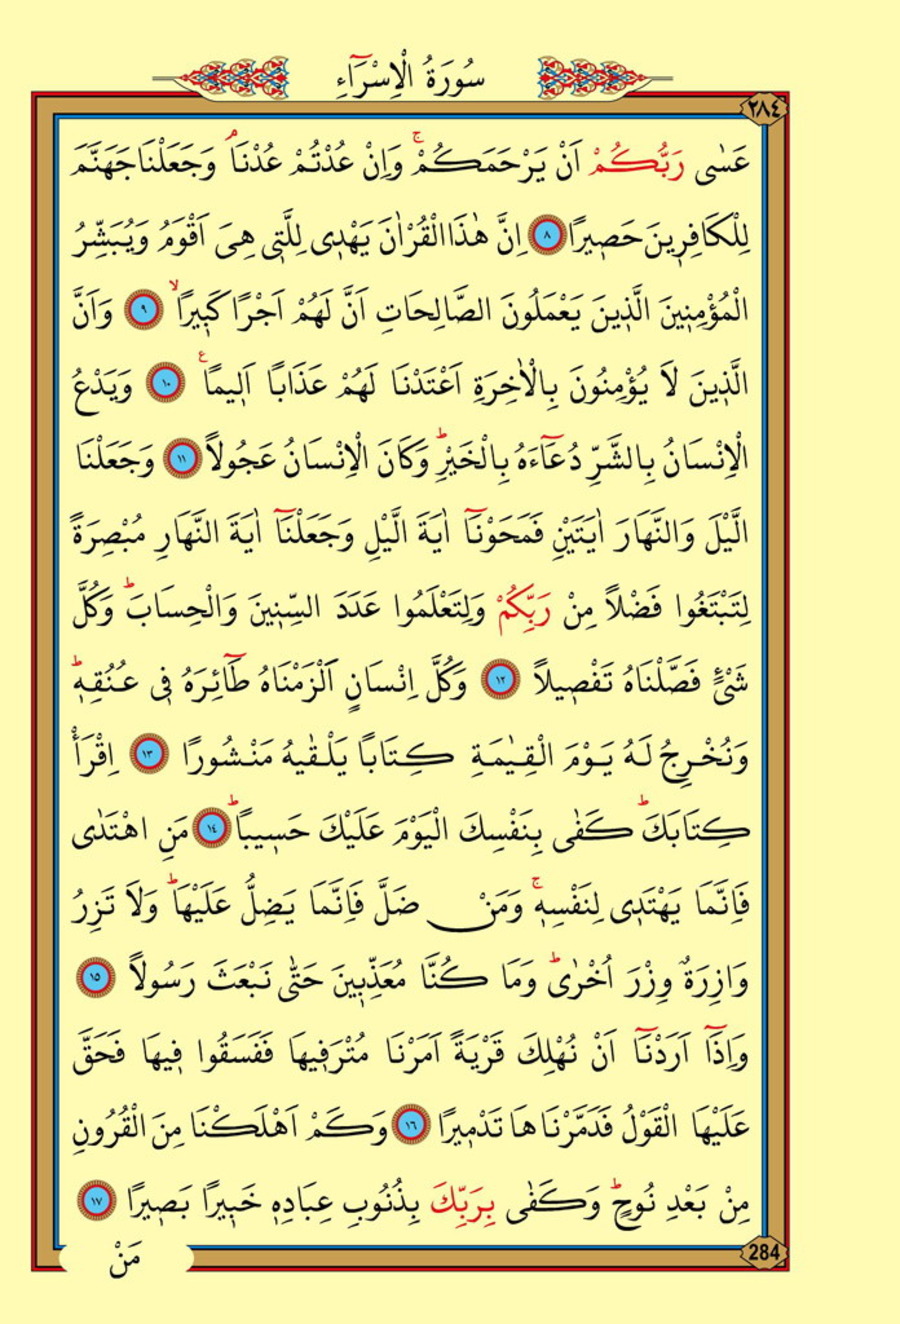 سُورَةُ الْاِسْرَٓاءِ
٢٨٤
عَسٰى رَبُّكُمْ اَنْ يَرْحَمَكُمْۚ وَاِنْ عُدْتُمْ عُدْنَاۢ وَجَعَلْنَا جَهَنَّمَ
لِلْكَافِرٖينَ حَصٖيرًا ﴿٨﴾ اِنَّ هٰذَا الْقُرْاٰنَ يَهْدٖى لِلَّتٖى هِىَ اَقْوَمُ وَيُبَشِّرُ
الْمُؤْمِنٖينَ الَّذٖينَ يَعْمَلُونَ الصَّالِحَاتِ اَنَّ لَهُمْ اَجْرًا كَبٖيرًاۙ ﴿٩﴾ وَاَنَّ
الَّذٖينَ لَا يُؤْمِنُونَ بِالْاٰخِرَةِ اَعْتَدْنَا لَهُمْ عَذَابًا اَلٖيمًاࣖ ﴿١٠﴾ وَيَدْعُ
الْاِنْسَانُ بِالشَّرِّ دُعَٓاءَهُ بِالْخَيْرِؕ وَكَانَ الْاِنْسَانُ عَجُولًا ﴿١١﴾ وَجَعَلْنَا
الَّيْلَ وَالنَّهَارَ اٰيَتَيْنِ فَمَحَوْنَٓا اٰيَةَ الَّيْلِ وَجَعَلْنَٓا اٰيَةَ النَّهَارِ مُبْصِرَةً
لِتَبْتَغُوا فَضْلًا مِنْ رَبِّكُمْ وَلِتَعْلَمُوا عَدَدَ السِّنٖينَ وَالْحِسَابَؕ وَكُلَّ
شَىْءٍ فَصَّلْنَاهُ تَفْصٖيلًا ﴿١٢﴾ وَكُلَّ اِنْسَانٍ اَلْزَمْنَاهُ طَٓائِرَهُ فٖى عُنُقِهٖؕ
وَنُخْرِجُ لَهُ يَوْمَ الْقِيٰمَةِ كِتَابًا يَلْقٰيهُ مَنْشُورًا ﴿١٣﴾ اِقْرَأْ
كِتَابَكَؕ كَفٰى بِنَفْسِكَ الْيَوْمَ عَلَيْكَ حَسٖيبًاؕ ﴿١٤﴾ مَنِ اهْتَدٰى
فَاِنَّمَا يَهْتَدٖى لِنَفْسِهٖۚ وَمَنْ ضَلَّ فَاِنَّمَا يَضِلُّ عَلَيْهَاؕ وَلَا تَزِرُ
وَازِرَةٌ وِزْرَ اُخْرٰىؕ وَمَا كُنَّا مُعَذِّبٖينَ حَتّٰى نَبْعَثَ رَسُولًا ﴿١٥﴾
وَاِذَٓا اَرَدْنَٓا اَنْ نُهْلِكَ قَرْيَةً اَمَرْنَا مُتْرَفٖيهَا فَفَسَقُوا فٖيهَا فَحَقَّ
عَلَيْهَا الْقَوْلُ فَدَمَّرْنَاهَا تَدْمٖيرًا ﴿١٦﴾ وَكَمْ اَهْلَكْنَا مِنَ الْقُرُونِ
مِنْ بَعْدِ نُوحٍؕ وَكَفٰى بِرَبِّكَ بِذُنُوبِ عِبَادِهٖ خَبٖيرًا بَصٖيرًا ﴿١٧﴾
284
مَنْ